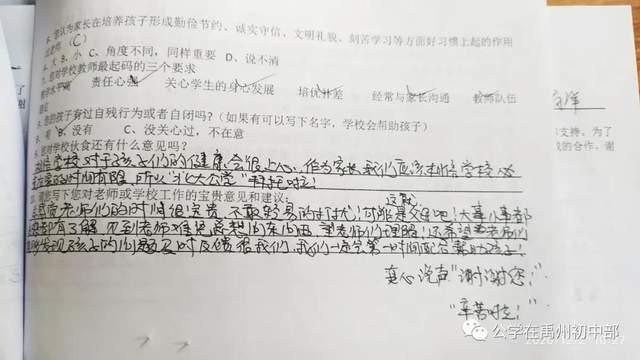 您认为家长在培养孩子形成勤俭节约、诚实守信、文明礼貌、刻苦学习等方面好习惯上起的作用
(C)
A、大 B、小 C、角度不同,同样重要 D、说不清
您对学校教师最起码的三个要求
教学水平高 责任心强 关心学生的身心发展 培优补差 经常与家长沟通 教师队伍
稳定
您的孩子有过自残行为或者自闭吗?(如果有可以写下名字,学校会帮助孩子)
A、有 B、没有 C、没关心过,不在意
您对学校伙食还有什么意见吗?
相信学校对于孩子们的健康会很上心,作为家长我们应该相信学校
的时间有限,所以"北大公学"
请您写下您对老师或学校工作的宝贵意见和建议:
老师们的时间很宝贵,不敢轻易的打扰!可能是父母吧!大事小事都
想了解,见到老师难免想问东问西,望老师们理解!还希望老师们
发现孩子的问题及时反馈给我们,我们一定会第一时间配合帮助孩子!
真心说声"谢谢您!"
"辛苦啦!"
支持,为了
的合作,谢
公学在禹州初中部